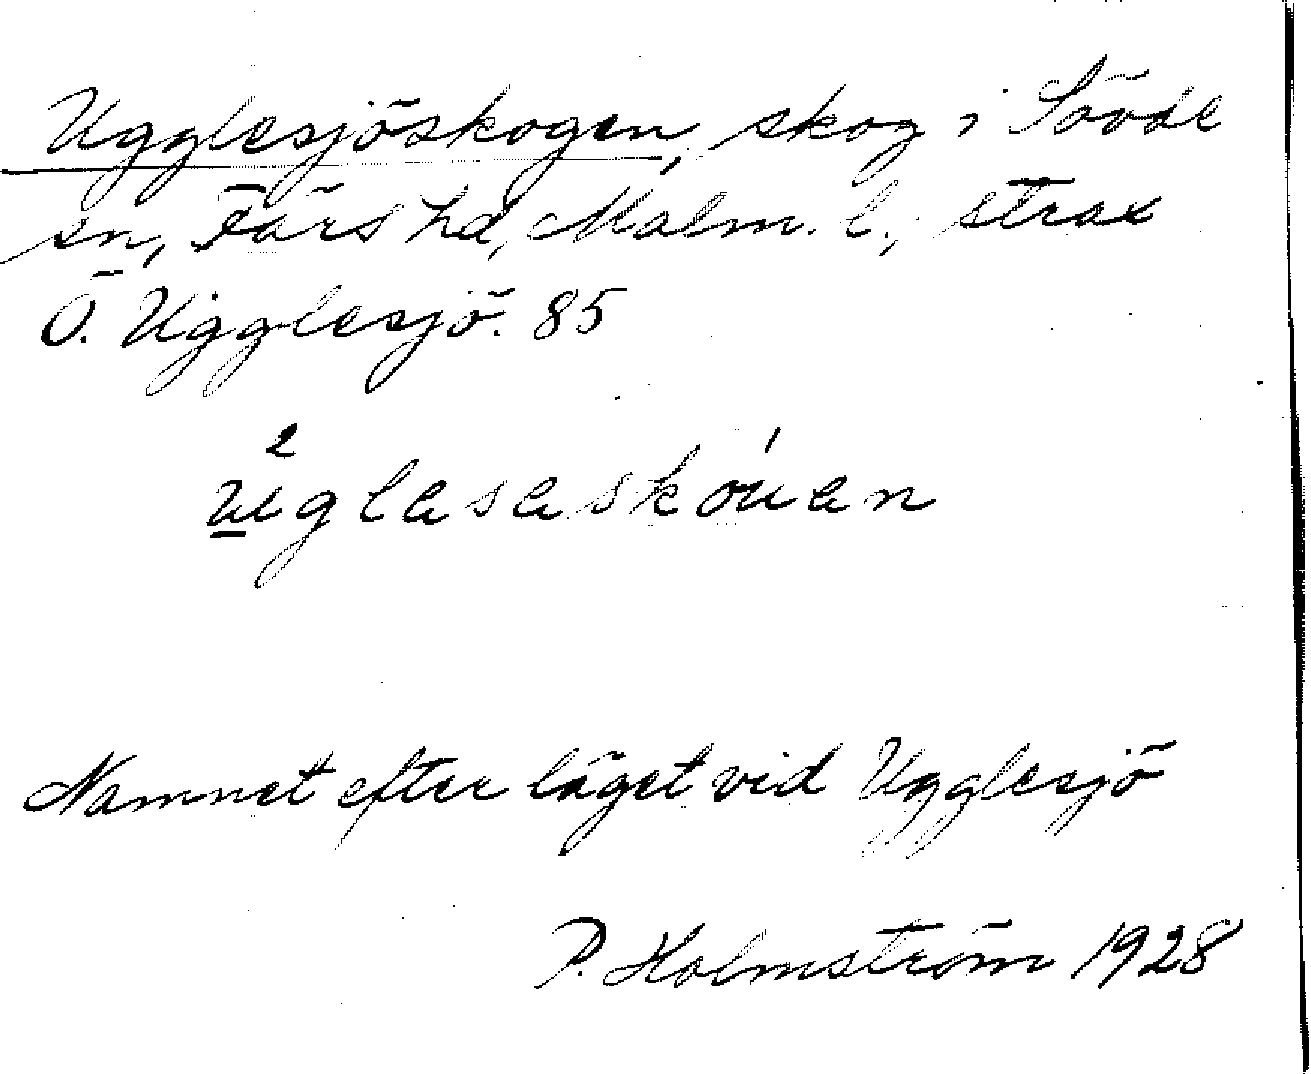 Ugglesjöskogen, skog i Sövde
sn, Färs hd, Malm. l., strax
Ö. Ugglesjö. 85
Namnet efter läget vid Ugglesjö
P. Holmström 1928